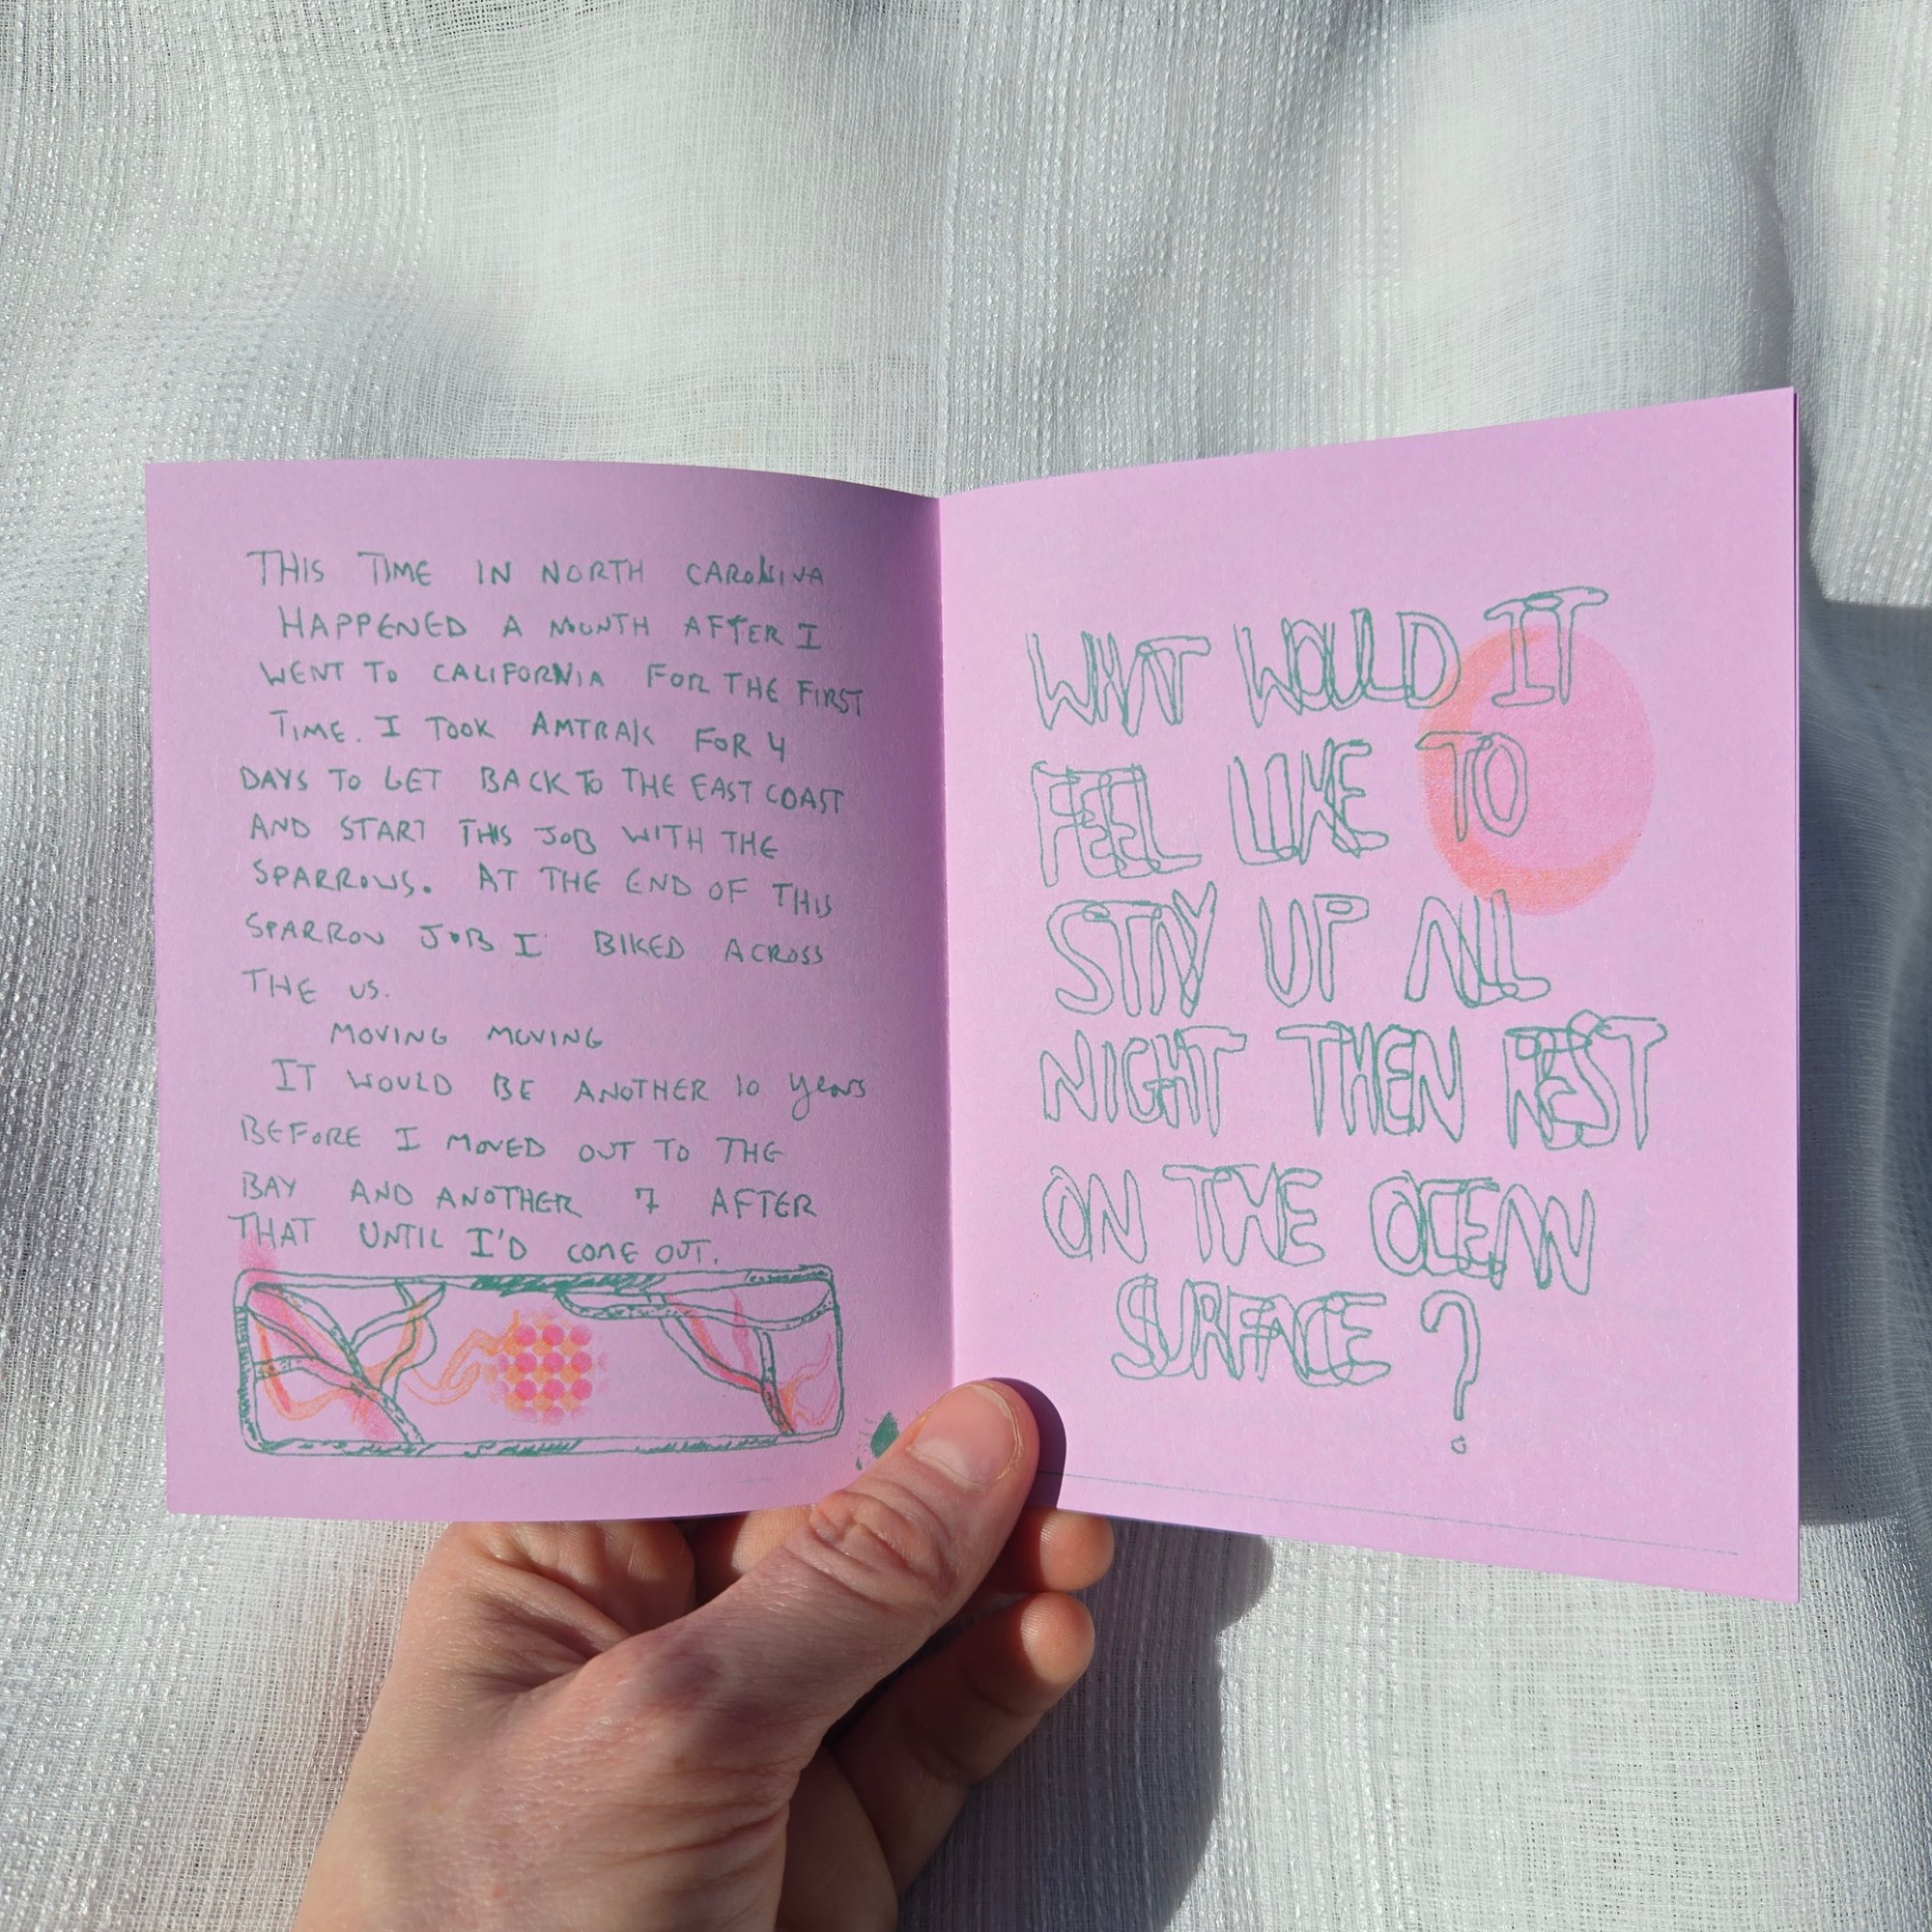 THIS TIME IN NORTH CAROLINA
HAPPENED A MONTH AFTER I
WENT TO CALIFORNIA FOR THE FIRST
TIME. I TOOK AMTRAK FOR 4
DAYS TO GET BACK TO THE EAST COAST
AND START THIS JOB WITH THE
SPARROWS. AT THE END OF THIS
SPARROW JOB I BIKED ACROSS
THE US.
MOVING MOVING
IT WOULD BE ANOTHER 10 years
BEFORE I MOVED OUT TO THE
BAY AND ANOTHER 7 AFTER
THAT UNTIL I'D COME OUT.
WHAT WOULD IT
FEEL LIKE TO
STAY UP ALL
NIGHT THEN REST
ON THE OCEAN
SURFACE?